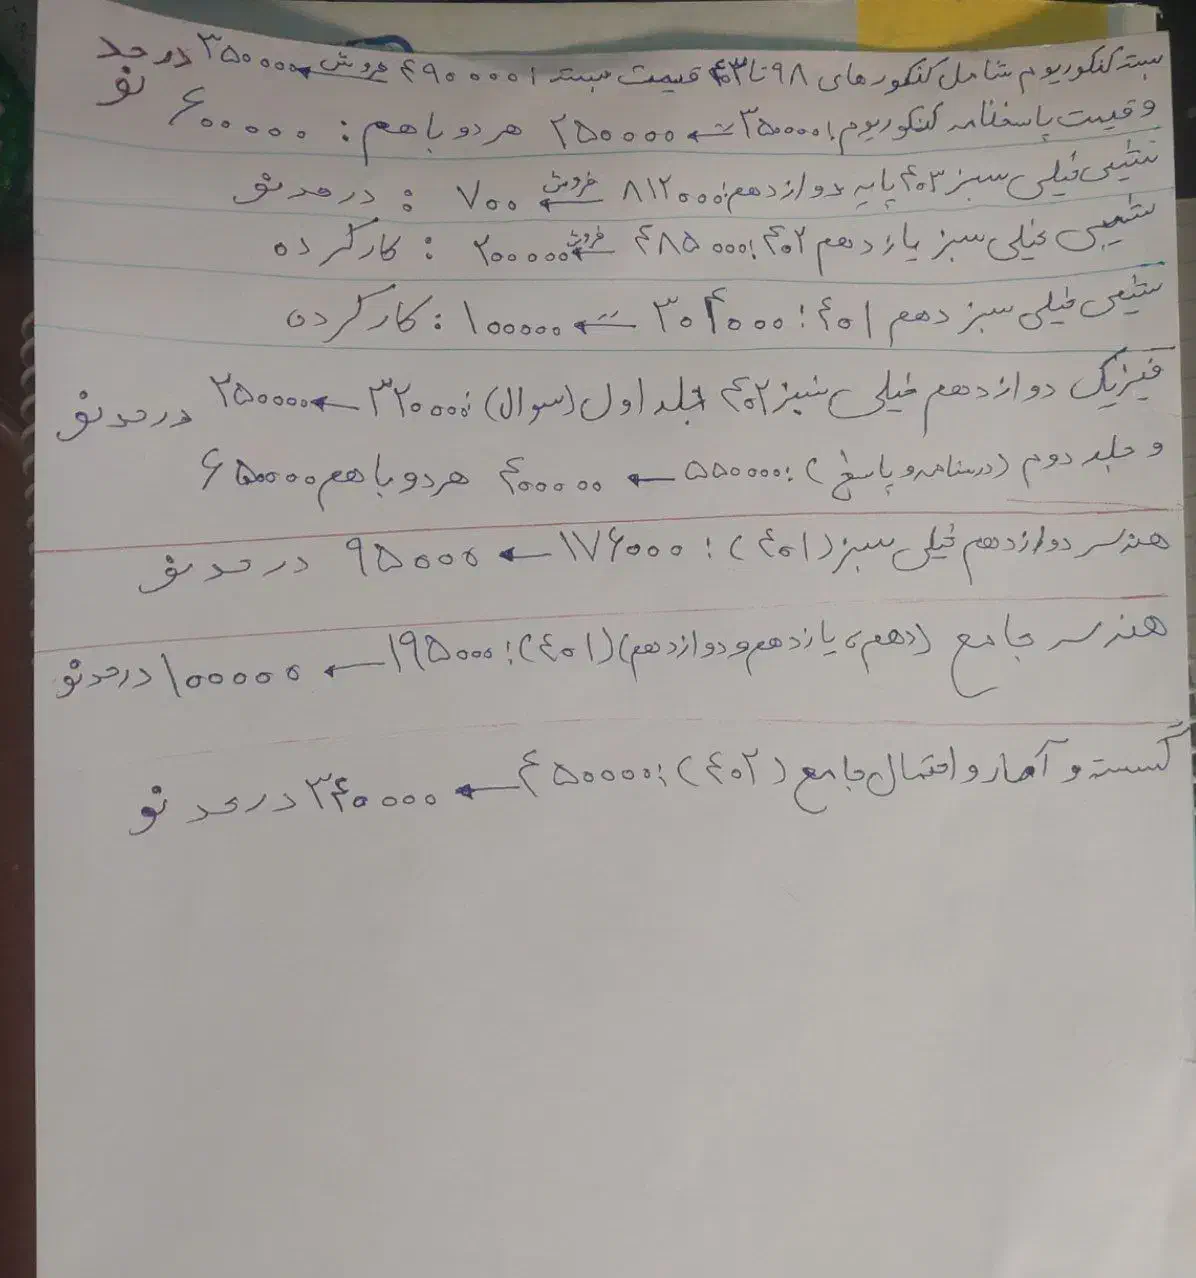 بسته کنکوریوم شامل کنکورهای ۹۸ تا ۴۰۳ قیمت بسته: ۴۹۰۰۰۰ فروش ← ۳۵۰۰۰۰ در حد نو
و قیمت پاسخنامه کنکوریوم: ۳۵۰۰۰۰ ← ۲۵۰۰۰۰ هر دو باهم: ۶۰۰۰۰۰
شیمی خیلی سبز ۴۰۳ پایه دوازدهم: ۸۱۲۰۰۰ فروش ← ۷۰۰ : در حد نو
شیمی خیلی سبز یازدهم ۴۰۲: ۴۸۵۰۰۰ فروش ← ۲۰۰۰۰۰ : کار کرده
شیمی خیلی سبز دهم ۴۰۱: ۳۰۴۰۰۰ ← ۱۰۰۰۰۰ : کار کرده
فیزیک دوازدهم خیلی سبز ۴۰۲ جلد اول (سوال): ۳۲۰۰۰۰ ← ۲۵۰۰۰۰ در حد نو
و جلد دوم (درسنامه و پاسخ): ۵۵۰۰۰۰ ← ۴۰۰۰۰۰ هر دو باهم ۶۵۰۰۰۰
هندسه دوازدهم خیلی سبز (۴۰۱): ۱۷۶۰۰۰ ← ۹۵۰۰۰ در حد نو
هندسه جامع (دهم، یازدهم و دوازدهم) (۴۰۱): ۱۹۵۰۰۰ ← ۱۰۰۰۰۰ در حد نو
گسسته و آمار و احتمال جامع (۴۰۲): ۴۵۰۰۰۰ ← ۳۴۰۰۰۰ در حد نو